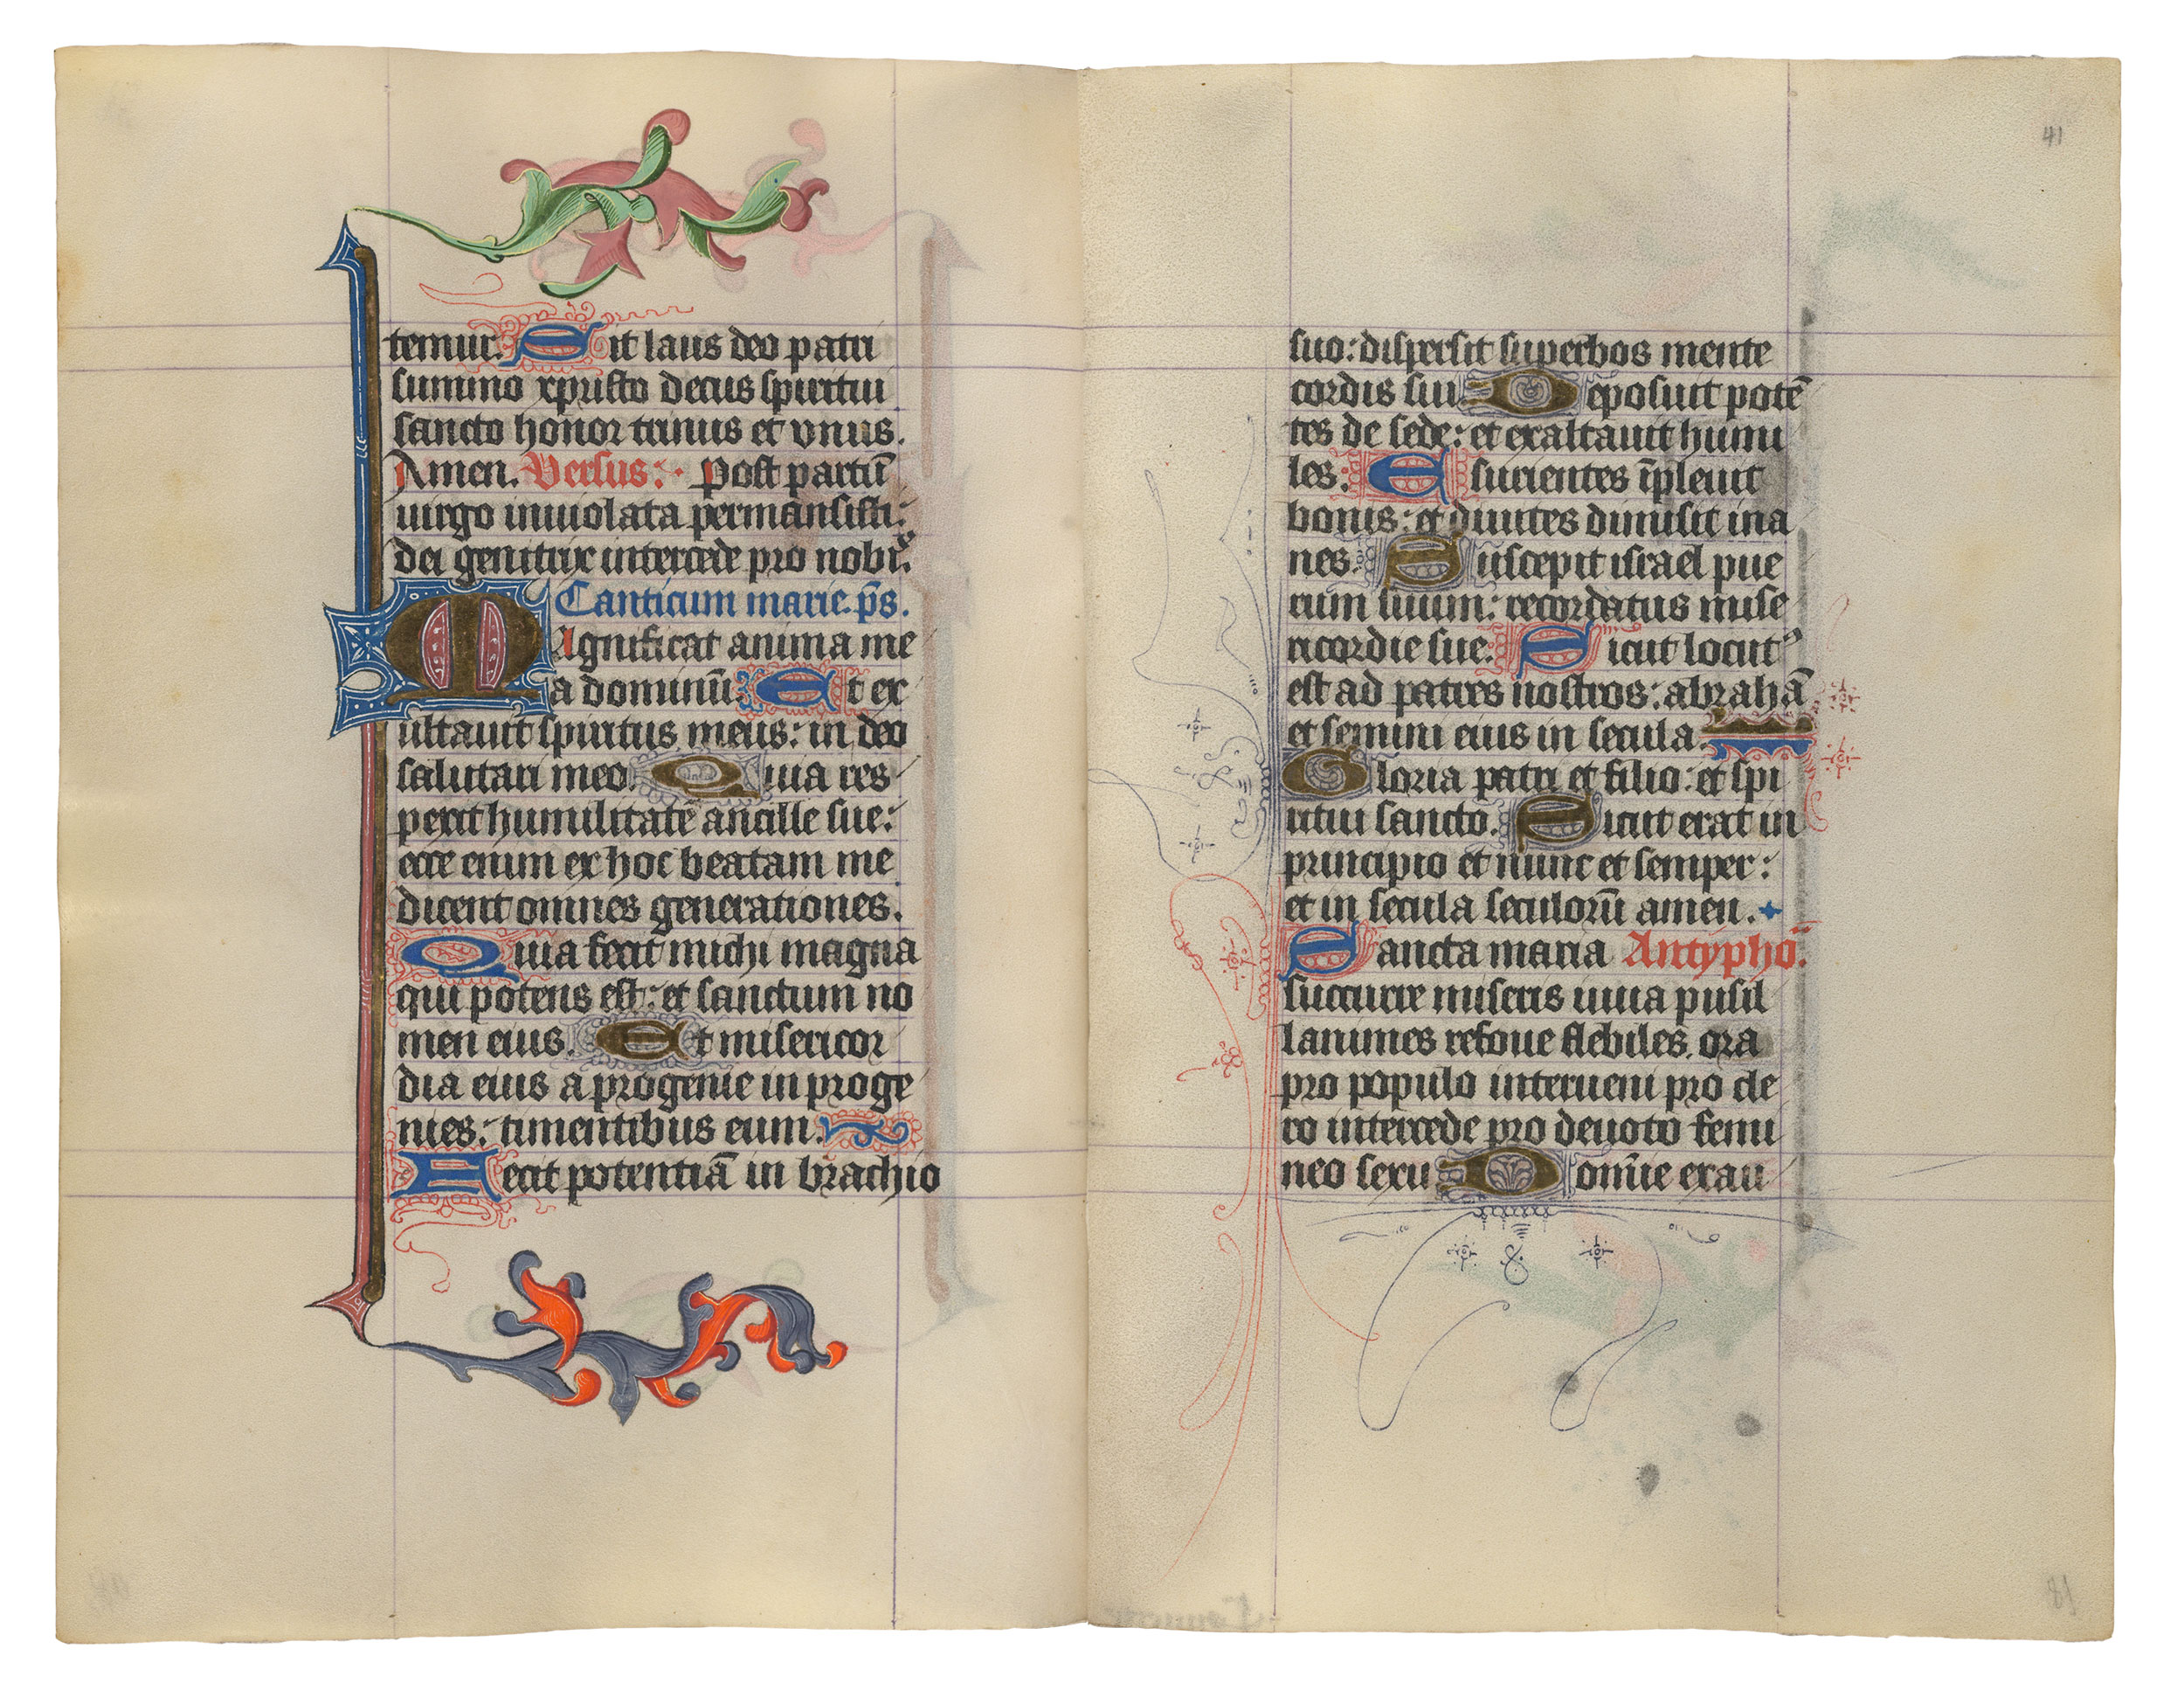 temur. Sit laus deo patri
summo xpristo decus spiritui
sancto honor trinus et vnus.
Amen. Versus: Post partū
uirgo inuiolata permansisti:
dei genitrix intercede pro nobis.
Canticum marie. ps.
Magnificat anima me
a dominū. Et ex
ultauit spiritus meus: in deo
salutari meo. Quia res
perit humilitatē ancille sue:
ecce enim ex hoc beatam me
dicent omnes generationes.
Quia fecit michi magna
qui potens est: et sanctum no
men eius. Et misericor
dia eius a progenie in proge
nies: timentibus eum.
Fecit potentiā in brachio
41
suo: dispersit superbos mente
cordis sui Deposuit potē
tes de sede: et exaltauit humi
les. Esurientes īpleuit
bonis: et diuites dimisit ina
nes. Suscepit israel pue
rum suum: recordatus mise
ricordie sue. Sicut locutꝰ
est ad patres nostros: abrahā
et semini eius in secula.
Gloria patri et filio: et spi
ritui sancto. Sicut erat in
principio et nunc et semper:
et in secula seculorū amen.
Sancta maria Antypho.
succurre miseris iuua pusil
lanimes refoue flebiles. ora
pro populo interueni pro cle
ro intercede pro deuoto femi
neo sexu Domīe exau